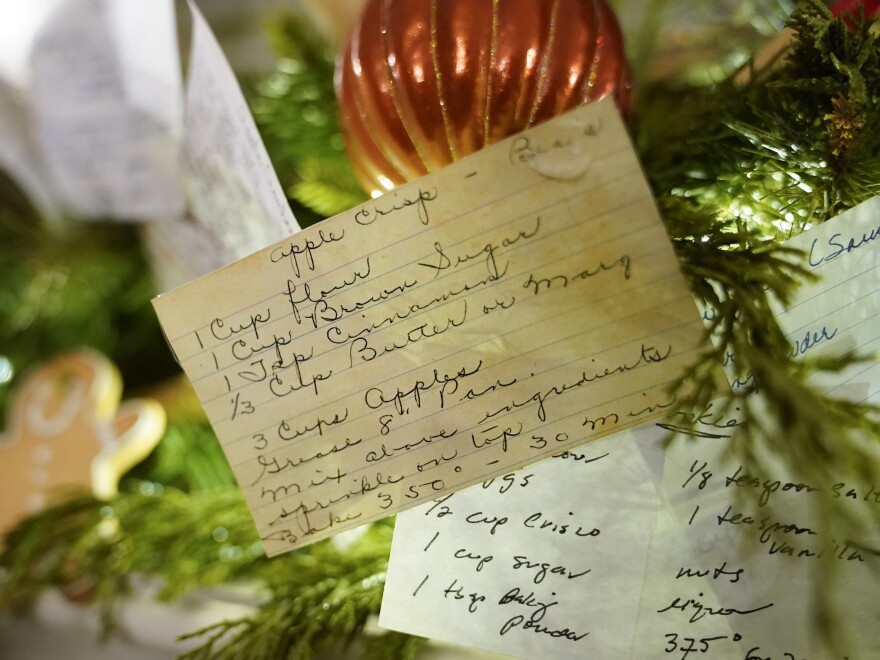 apple Crisp -
1 Cup flour
1 Cup Brown Sugar
1 Tsp Cinnamon
1/3 Cup Butter or Marg
3 Cups Apples
Grease 8" Pan.
Mix above ingredients
sprinkle on top
Bake 350° - 30 Min
1/2 cup Crisco
1 cup sugar
1 tsp Baking
Powder
1/8 teaspoon salt
1 teaspoon
vanilla
nuts
375°